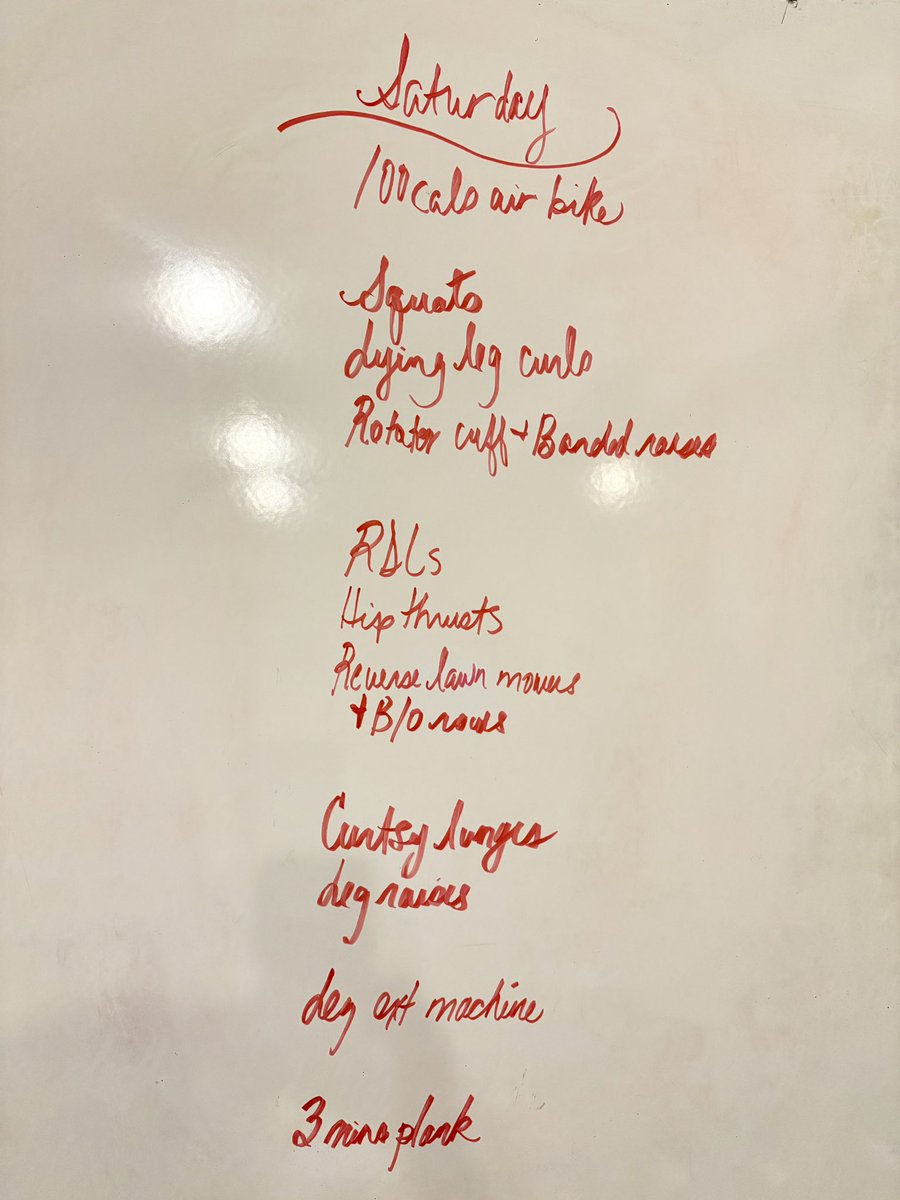 Saturday
100 cals air bike
Squats
Lying leg curls
Rotator cuff + Banded raises
RDLs
Hip thrusts
Reverse lawn mowers
+ B/O rows
Curtsy lunges
Leg raises
Leg ext machine
3 mins plank